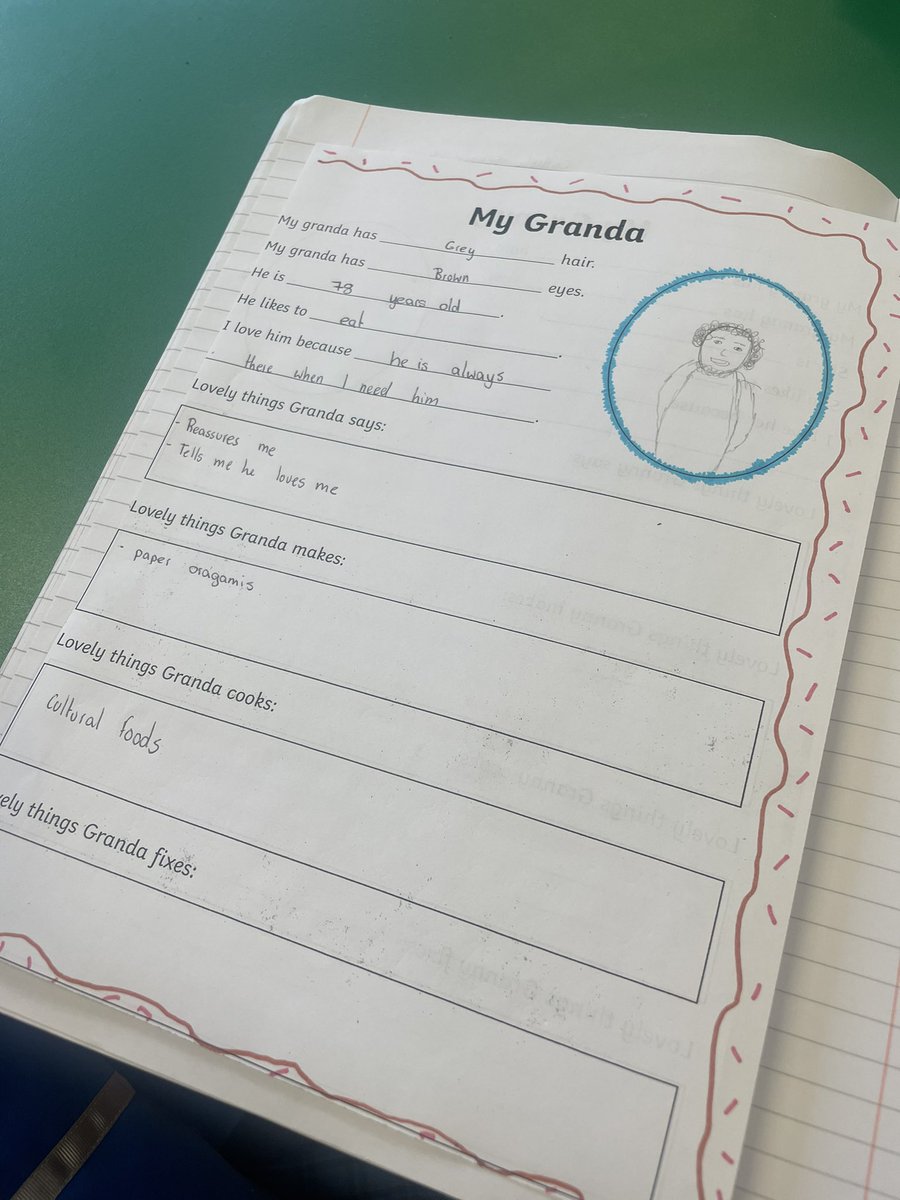 My Granda
My granda has Grey hair.
My granda has Brown eyes.
He is 78 years old.
He likes to eat.
I love him because he is always
there when I need him.
Lovely things Granda says:
- Reassures me
- Tells me he loves me
Lovely things Granda makes:
- paper oragamis
Lovely things Granda cooks:
cultural foods
ely things Granda fixes: